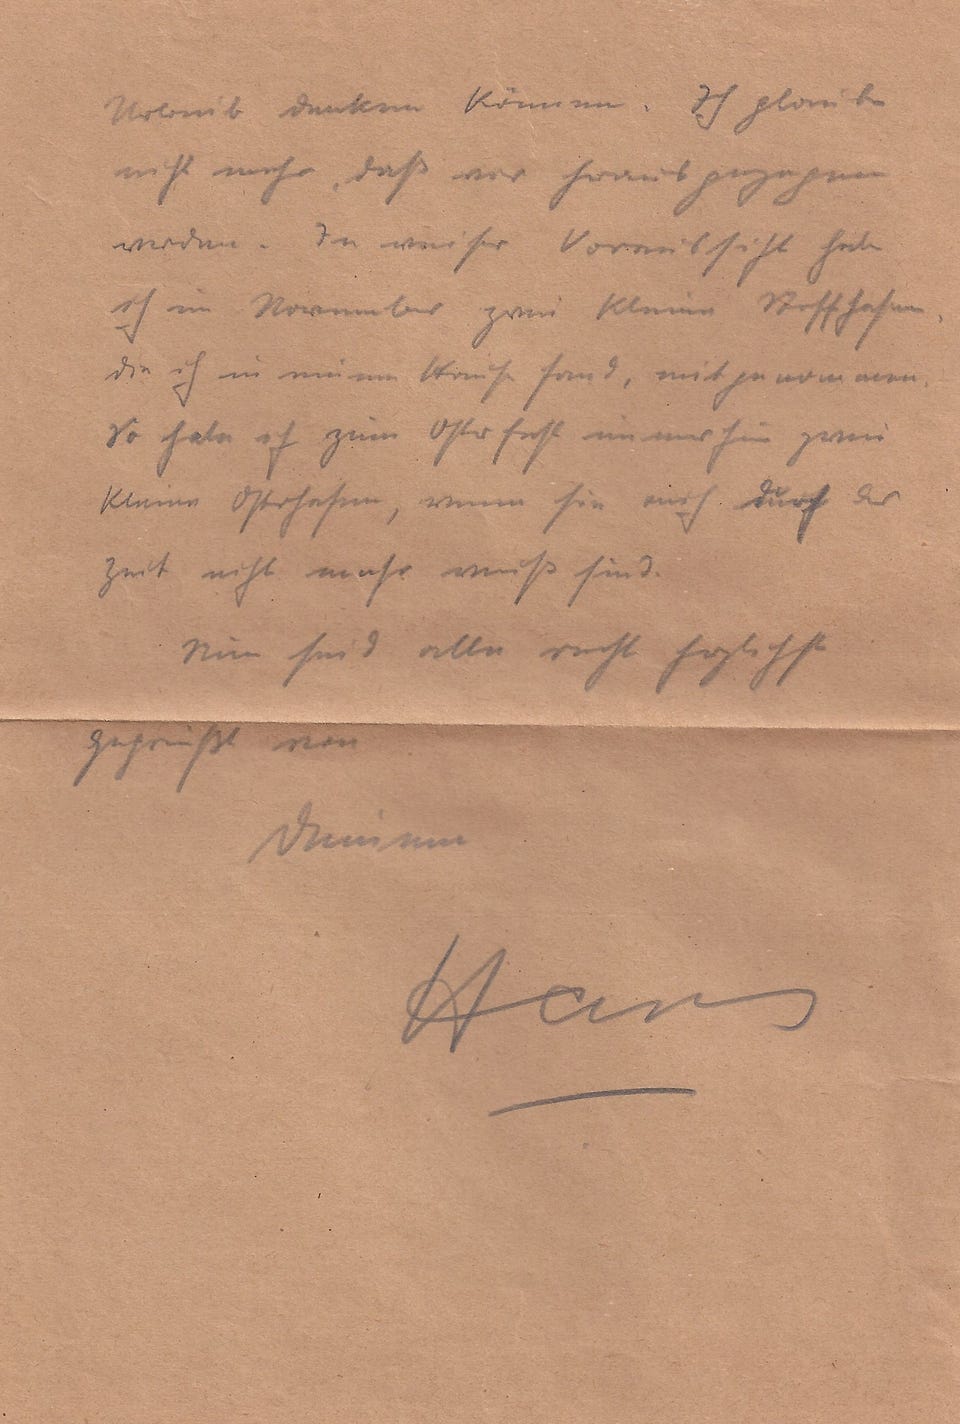 Urlaub denken können. Ich glaube
nicht mehr, daß wir herausgezogen
werden. In weiser Voraussicht habe
ich im November zwei kleine Stoffhasen,
die ich in einem Hause fand, mitgenommen.
So habe ich zum Osterfest immerhin zwei
kleine Osterhasen, wenn sie auch durch der
Zeit nicht mehr weiß sind.
Nun seid alle recht herzlichst
gegrüßt von
Deinem
Hans